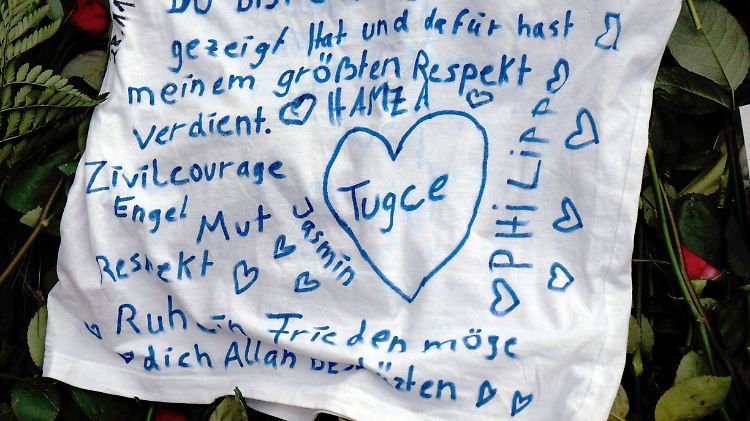 Du bist
gezeigt Hat und dafür hast
meinem größten Respekt
verdient. HAMZA
Zivilcourage
Engel
Mut
Respekt
Jasmin
Tugce
PHiLiPP
Ruh in Frieden möge
dich Allah